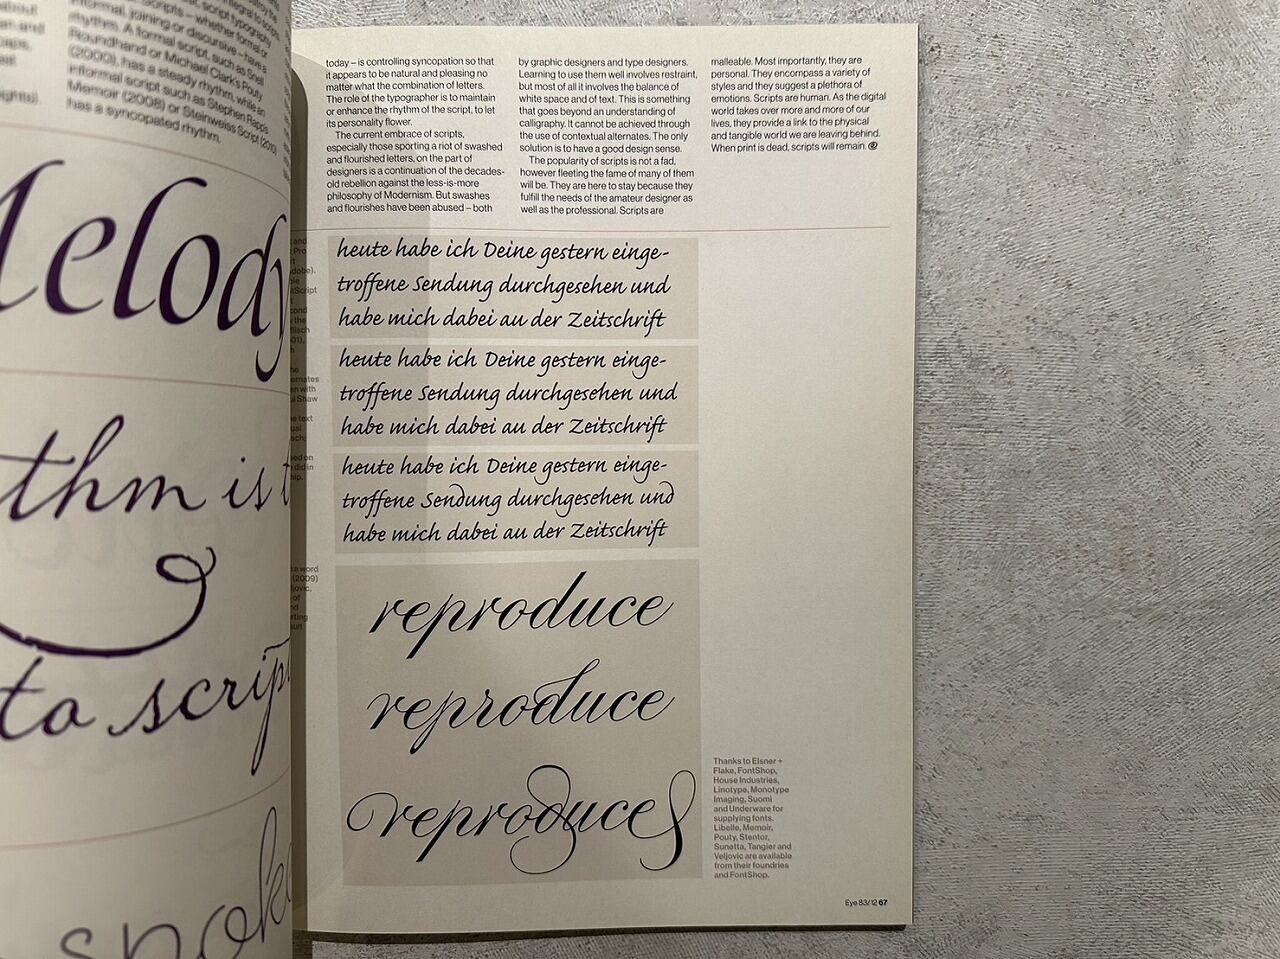 about
informal, joining or discursive – have a
rhythm. A formal script, such as Snell
Roundhand or Michael Clark's Pouty
(2000), has a steady rhythm, while an
informal script such as Stephen Rapp's
Memoir (2008) or Steinweiss Script (2010)
has a syncopated rhythm.
Melody
thm is t
to script
spok
today – is controlling syncopation so that
it appears to be natural and pleasing no
matter what the combination of letters.
The role of the typographer is to maintain
or enhance the rhythm of the script, to let
its personality flower.
The current embrace of scripts,
especially those sporting a riot of swashed
and flourished letters, on the part of
designers is a continuation of the decades-
old rebellion against the less-is-more
philosophy of Modernism. But swashes
and flourishes have been abused – both
by graphic designers and type designers.
Learning to use them well involves restraint,
but most of all it involves the balance of
white space and of text. This is something
that goes beyond an understanding of
calligraphy. It cannot be achieved through
the use of contextual alternates. The only
solution is to have a good design sense.
The popularity of scripts is not a fad,
however fleeting the fame of many of them
will be. They are here to stay because they
fulfill the needs of the amateur designer as
well as the professional. Scripts are
malleable. Most importantly, they are
personal. They encompass a variety of
styles and they suggest a plethora of
emotions. Scripts are human. As the digital
world takes over more and more of our
lives, they provide a link to the physical
and tangible world we are leaving behind.
When print is dead, scripts will remain.
heute habe ich Deine gestern einge-
troffene Sendung durchgesehen und
habe mich dabei au der Zeitschrift
heute habe ich Deine gestern einge-
troffene Sendung durchgesehen und
habe mich dabei au der Zeitschrift
heute habe ich Deine gestern einge-
troffene Sendung durchgesehen und
habe mich dabei au der Zeitschrift
reproduce
reproduce
reproduce
Thanks to Elsner +
Flake, FontShop,
House Industries,
Linotype, Monotype
Imaging, Suomi
and Underware for
supplying fonts.
Libelle, Memoir,
Pouty, Stentor,
Sunetta, Tangier and
Veljovic are available
from their foundries
and FontShop.
Eye 83/12 67